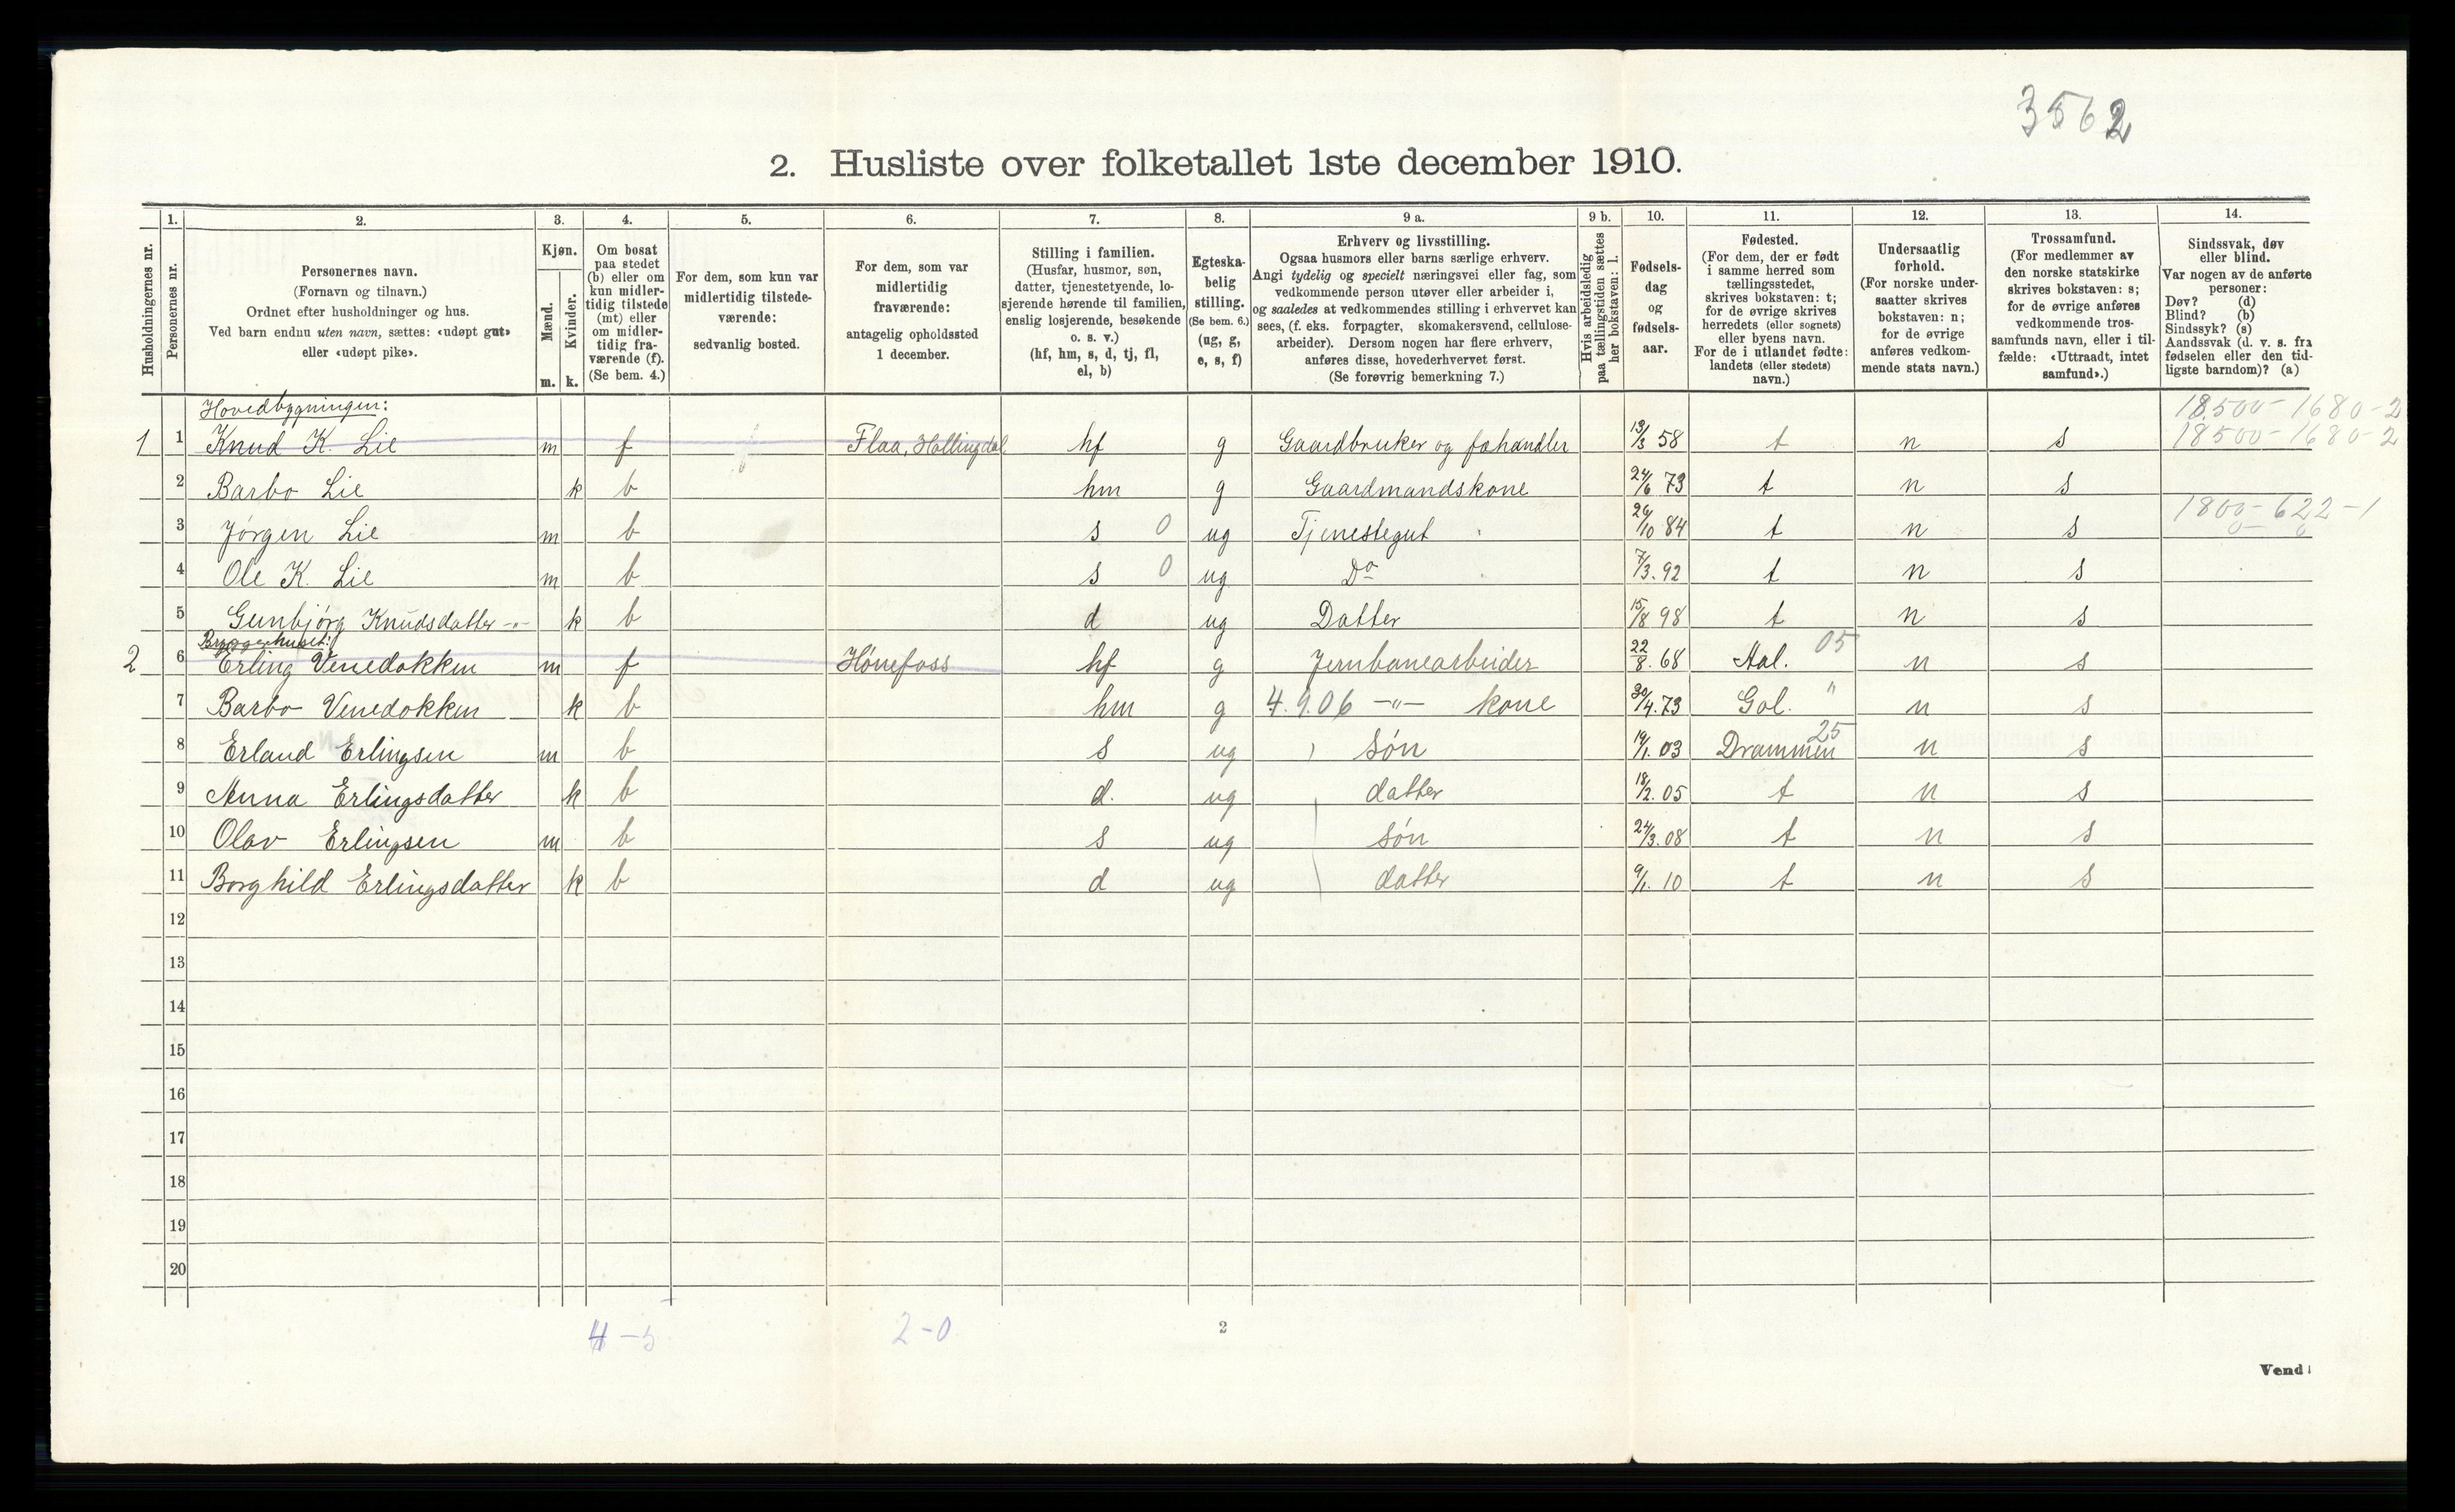 3562
2. Husliste over folketallet 1ste december 1910.
Husholdningernes nr.
1.
Personernes nr.
2.
Personernes navn.
(Fornavn og tilnavn.)
Ordnet efter husholdninger og hus.
Ved barn endnu uten navn, sættes: «udøpt gut»
eller «udøpt pike».
3.
Kjøn.
Mænd.
Kvinder.
m. k.
4.
Om bosat
paa stedet
(b) eller om
kun midler-
tidig tilstede
(mt) eller
om midler-
tidig fra-
værende (f).
(Se bem. 4.)
5.
For dem, som kun var
midlertidig tilstede-
værende:
sedvanlig bosted.
6.
For dem, som var
midlertidig
fraværende:
antagelig opholdssted
1 december.
7.
Stilling i familien.
(Husfar, husmor, søn,
datter, tjenestetyende, lo-
sjerende hørende til familien,
enslig losjerende, besøkende
o. s. v.)
(hf, hm, s, d, tj, fl,
el, b)
8.
Egteska-
belig
stilling.
(Se bem. 6.)
(ug, g,
e, s, f)
9 a.
Erhverv og livsstilling.
Ogsaa husmors eller barns særlige erhverv.
Angi tydelig og specielt næringsvei eller fag, som
vedkommende person utøver eller arbeider i,
og saaledes at vedkommendes stilling i erhvervet kan
sees, (f. eks. forpagter, skomakersvend, cellulose-
arbeider). Dersom nogen har flere erhverv,
anføres disse, hovederhvervet først.
(Se forøvrig bemerkning 7.)
9 b.
Hvis arbeidsledig
paa tællingstiden sættes
her bokstaven: l.
10.
Fødsels-
dag
og
fødsels-
aar.
11.
Fødested.
(For dem, der er født
i samme herred som
tællingsstedet,
skrives bokstaven: t;
for de øvrige skrives
herredets (eller sognets)
eller byens navn.
For de i utlandet fødte:
landets (eller stedets)
navn.)
12.
Undersaatlig
forhold.
(For norske under-
saatter skrives
bokstaven: n;
for de øvrige
anføres vedkom-
mende stats navn.)
13.
Trossamfund.
(For medlemmer av
den norske statskirke
skrives bokstaven: s;
for de øvrige anføres
vedkommende tros-
samfunds navn, eller i til-
fælde: «Uttraadt, intet
samfund».)
14.
Sindssvak, døv
eller blind.
Var nogen av de anførte
personer:
Døv? (d)
Blind? (b)
Sindssyk? (s)
Aandssvak (d. v. s. fra
fødselen eller den tid-
ligste barndom)? (a)
Hovedbygningen: 18.500-1680-2
1 1 Knud K. Lie m f Flaa, Hallingdal hf g Gaardbruker og fæhandler 13/3 58 t n s 18500-1680-2
2 Barbo Lie k b hm g Gaardmandskone 24/6 73 t n s
3 Jørgen Lie m b s 0 ug Tjenestegut 29/10 84 t n s 1800-622-1
4 Ole K. Lie m b s 0 ug Do 7/3.92 t n s
5 Gunbjørg Knudsdatter -"- k b d ug Datter 15/8 98 t n s
Bryggerhuset:
2 6 Erling Venedokken m f Hønefoss hf g Jernbanearbeider 22/8.68 Aal. 05 n s
7 Barbo Venedokken k b hm g 4.9.06 -"- kone 30/4.73 Gol. " n s
8 Erland Erlingsen m b s ug søn 19/1.03 Drammen 25 n s
9 Anna Erlingsdatter k b d. ug datter 18/2.05 t n s
10 Olav Erlingsen m b s ug søn 24/3.08 t n s
11 Borghild Erlingsdatter k b d ug datter 9/1.10 t n s
12
13
14
15
16
17
18
19
20
4-5 2-0
2
Vend!